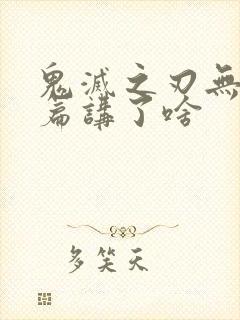 鬼滅之刃無
篇講了啥
多笑天